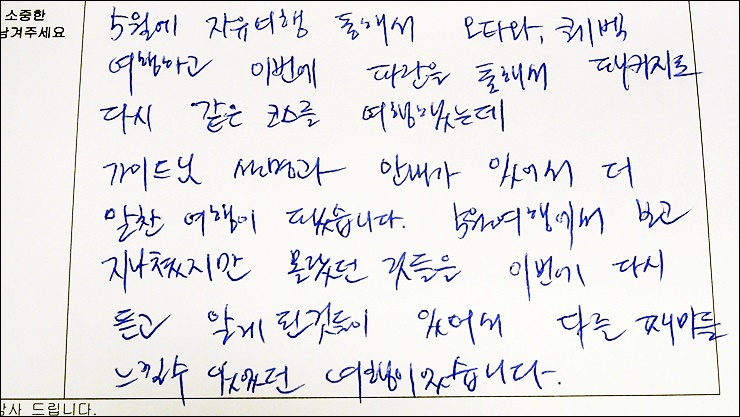 소중한
남겨주세요
5월에 자유여행 통해서 오타와, 퀘벡
여행하고 이번에 파란을 통해서 패키지로
다시 같은 코스를 여행했는데
가이드님 설명과 안내가 있어서 더
알찬 여행이 되었습니다. 5월여행에서 보고
지나쳤지만 몰랐던 것들을 이번에 다시
듣고 알게 된것들이 있어서 다른 재미를
느낄수 있었던 여행이었습니다.
감사 드립니다.